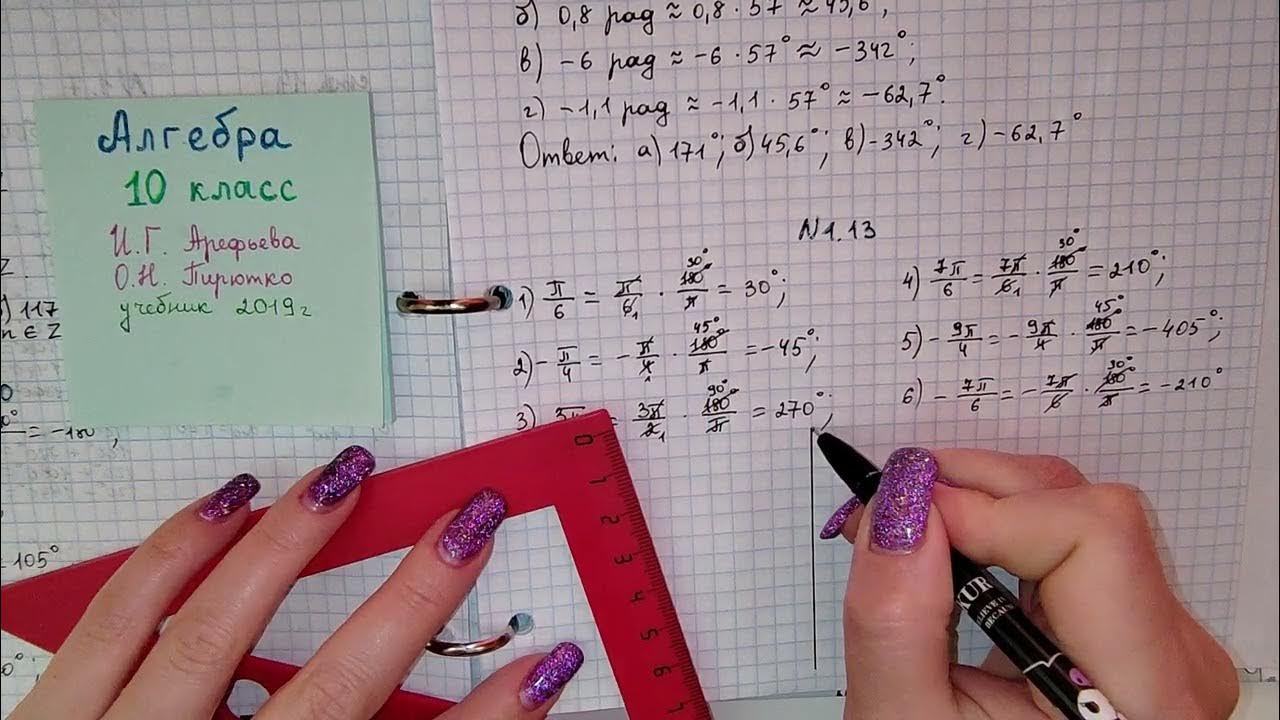 б) 0,8 рад ≈ 0,8 · 57° ≈ 45,6°;
в) -6 рад ≈ -6 · 57° ≈ -342°;
г) -1,1 рад ≈ -1,1 · 57° ≈ -62,7°.
Ответ: а) 171°; б) 45,6°; в) -342°; г) -62,7°
Алгебра
10 класс
И.Г. Арефьева
О.Н. Пирютко
учебник 2019 г
) 117
n ∈ Z
= -180°;
105°
N1.13
1) π/6 = π/6 1 · 180° 30°/π = 30°;
2) -π/4 = -π/4 1 · 180° 45°/π = -45°;
3) 3π = 3π/2 1 · 180° 90°/π = 270°;
4) 7π/6 = 7π/6 1 · 180° 30°/π = 210°;
5) -9π/4 = -9π/4 · 180° 45°/π = -405°;
6) -7π/6 = -7π/6 · 180° 30°/π = -210°
0 1 2 3 4 5 6 7